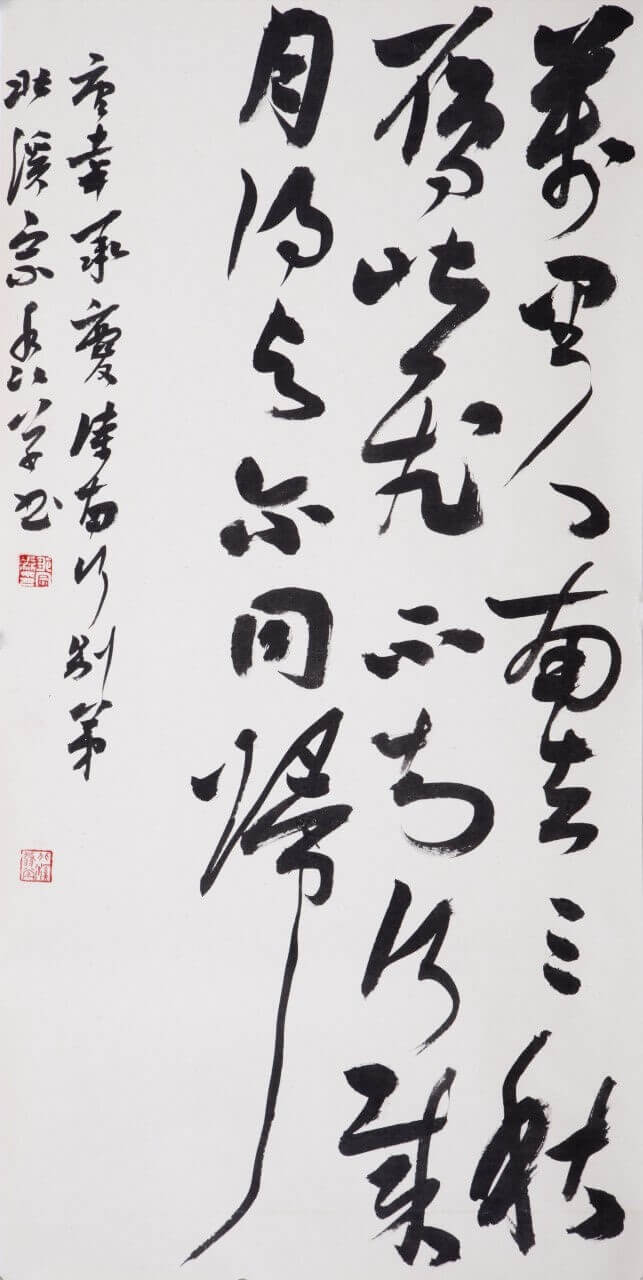 萬里人南去三秋
雁北飛不知何歲
月得与尔同歸
唐韋承慶詩南行别弟
北溪宗草书